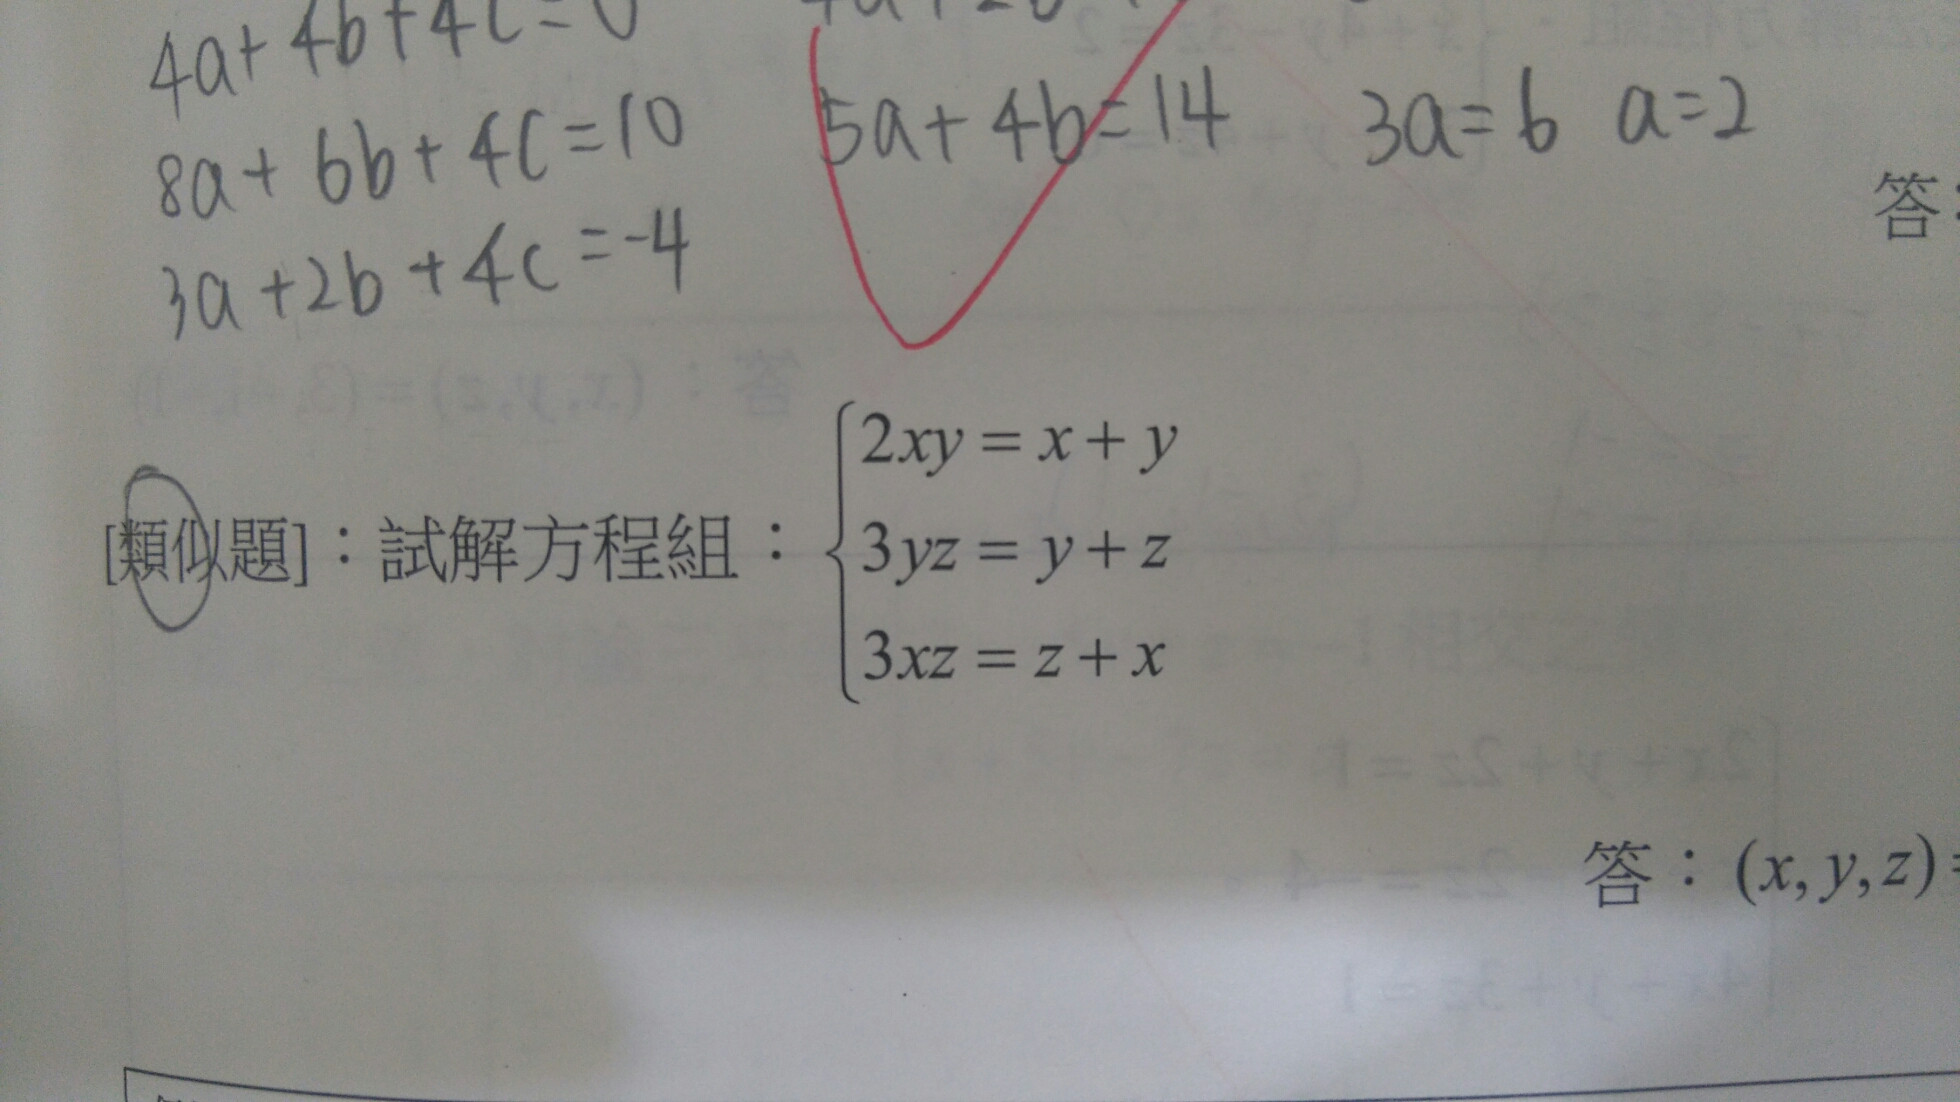 4a+4b+4c=0
8a+6b+4c=10 5a+4b=14 3a=6 a=2
答:
3a+2b+4c=-4
2xy = x + y
[類似題]：試解方程組： 3yz = y + z
3xz = z + x
答：(x, y, z) =